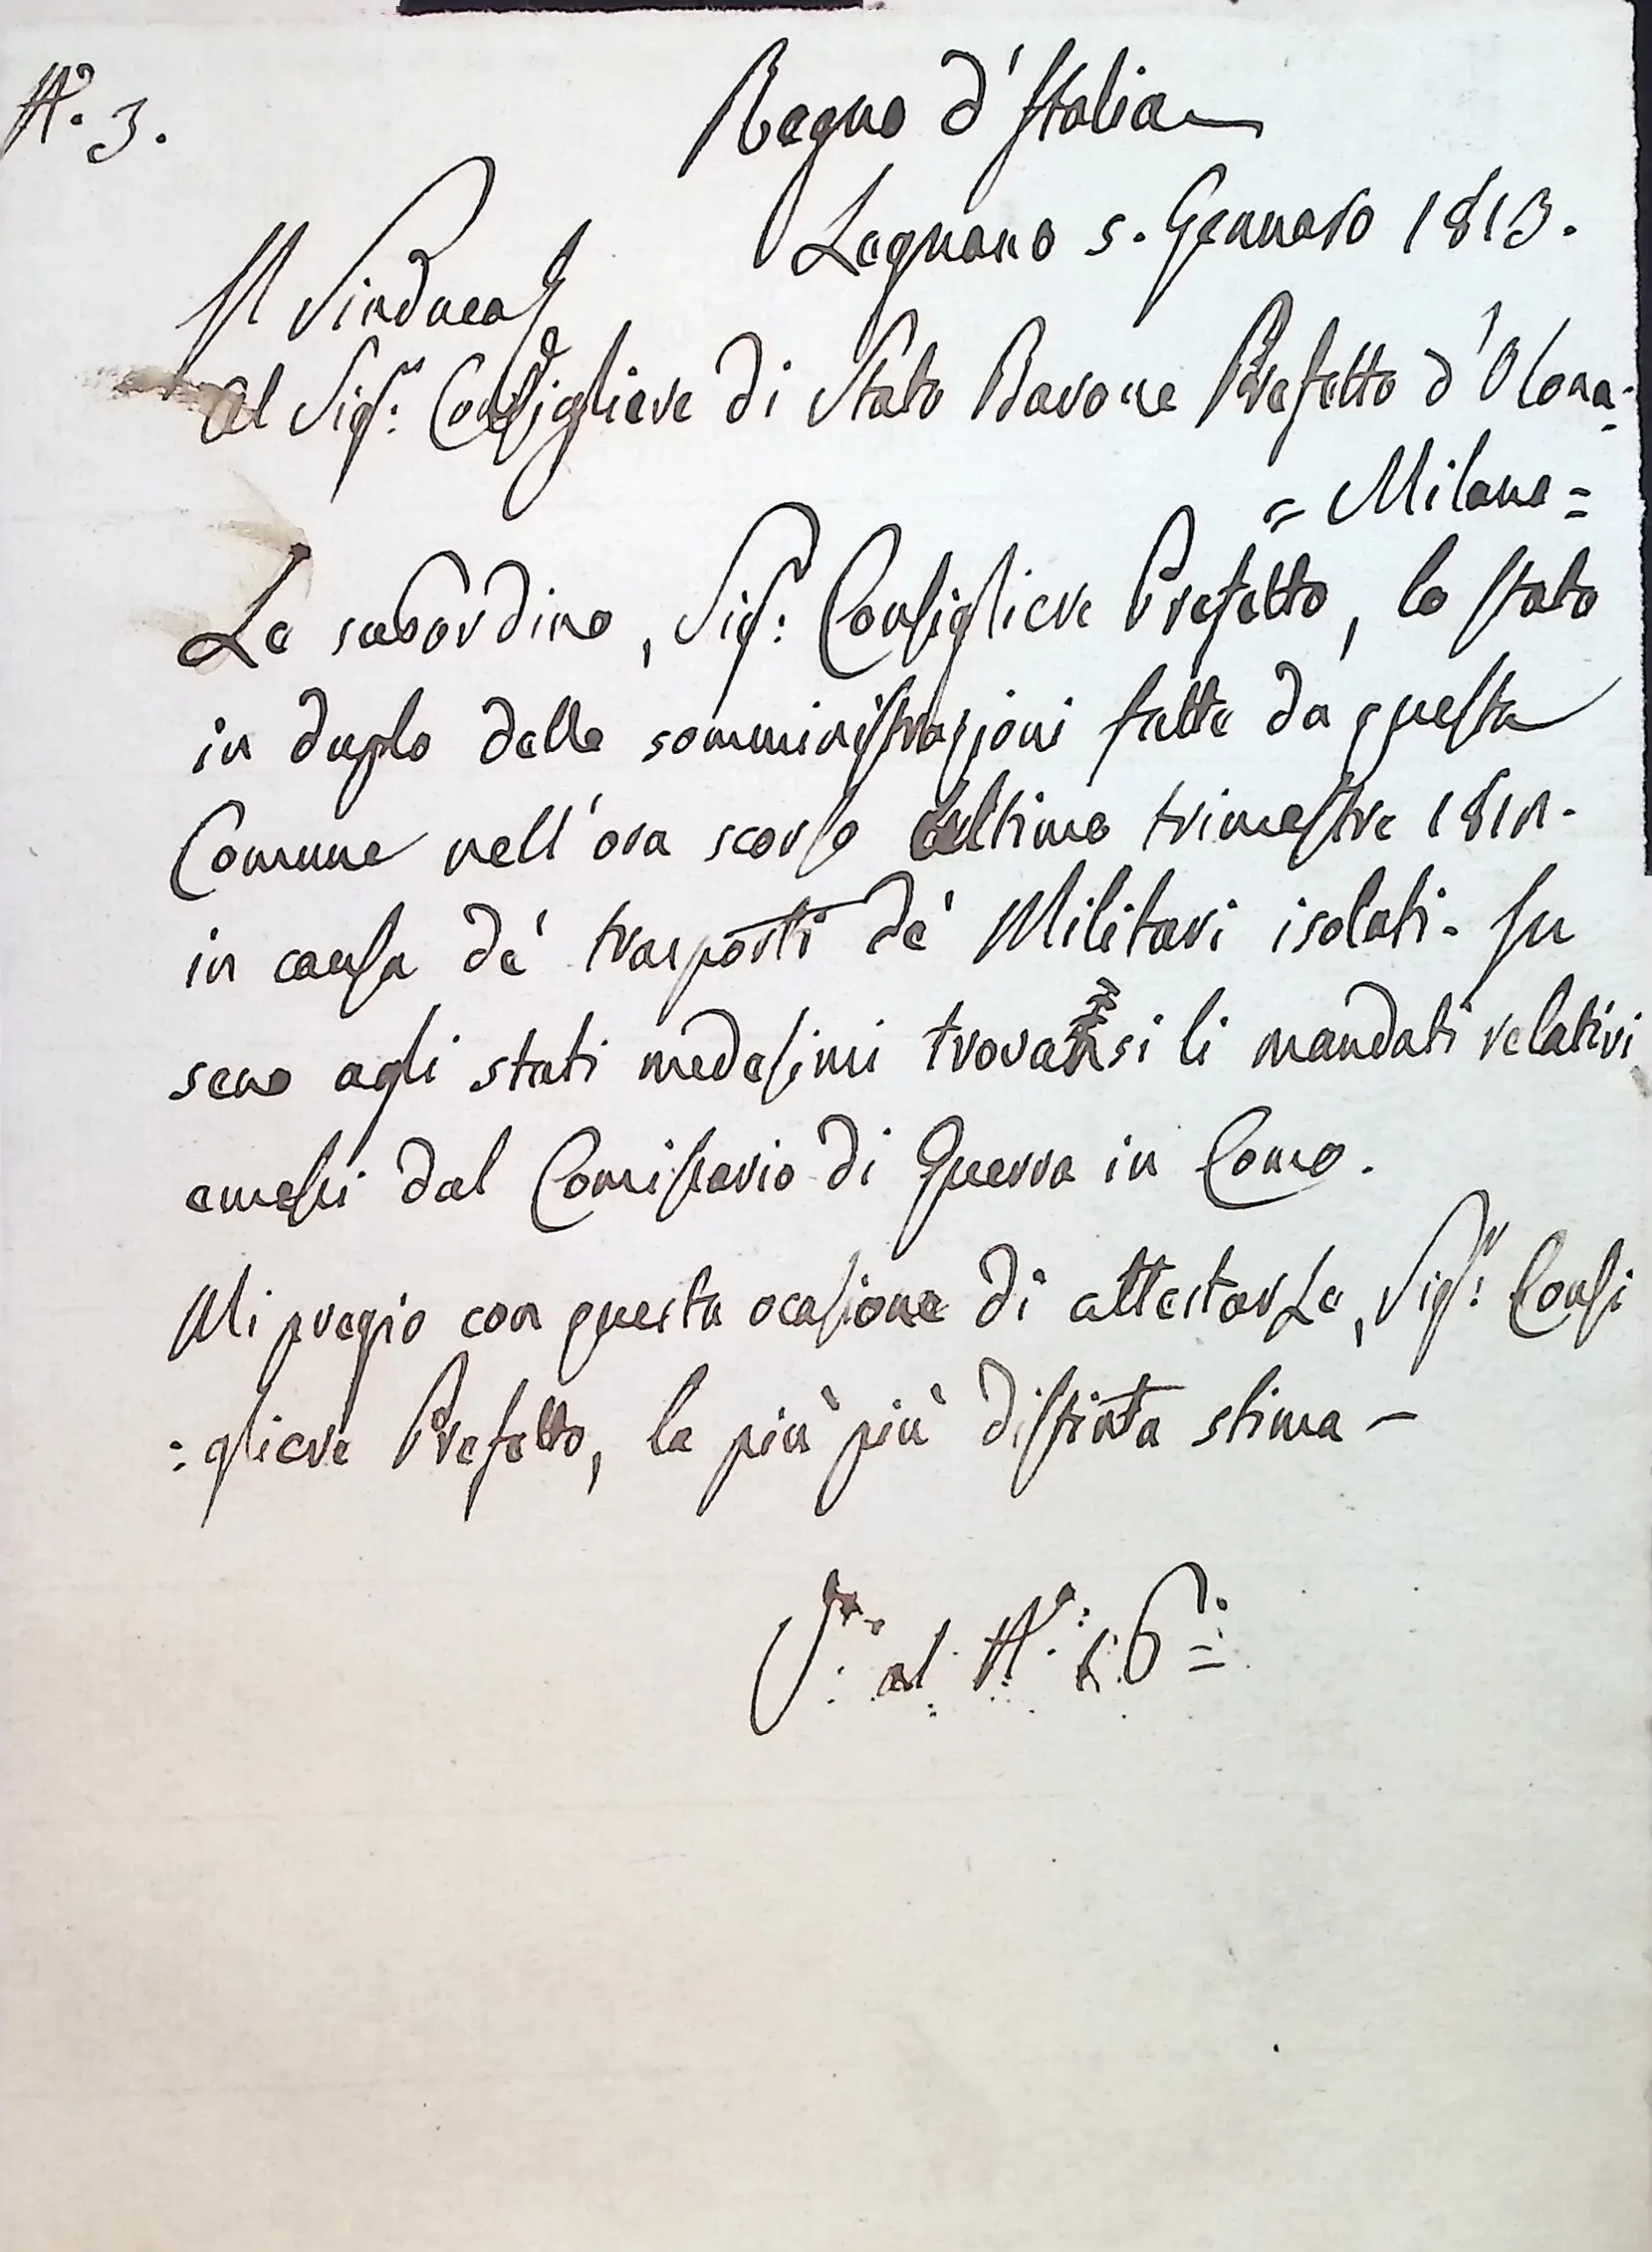 N.° 3.
Regno d'Italia
Legnano 5. Gennaro 1813.
Il Sindaco
Al Sig.r Consigliere di Stato Barone Prefetto d'Olona.
= Milano =
Le subordino, Sig.r Consigliere Prefetto, lo stato
in duplo delle somministrazioni fatte da questa
Comune nell'ora scorso ultimo trimestre
in causa de' trasporti de' Militari isolati. In
seno agli stati medesimi trovansi li mandati relativi
emessi dal Comissario di Guerra in Como.
Mi pregio con questa ocasione di attestarLe, Sig.r Consi
:gliere Prefetto, la più più distinta stima –
al N.°